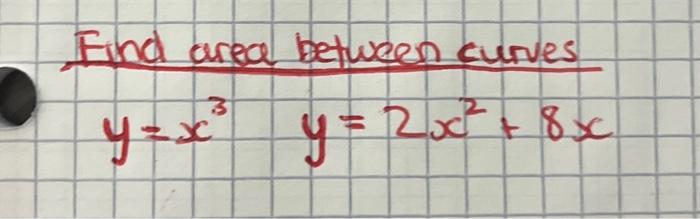 Find area between curves
y = x³ y = 2x² + 8x